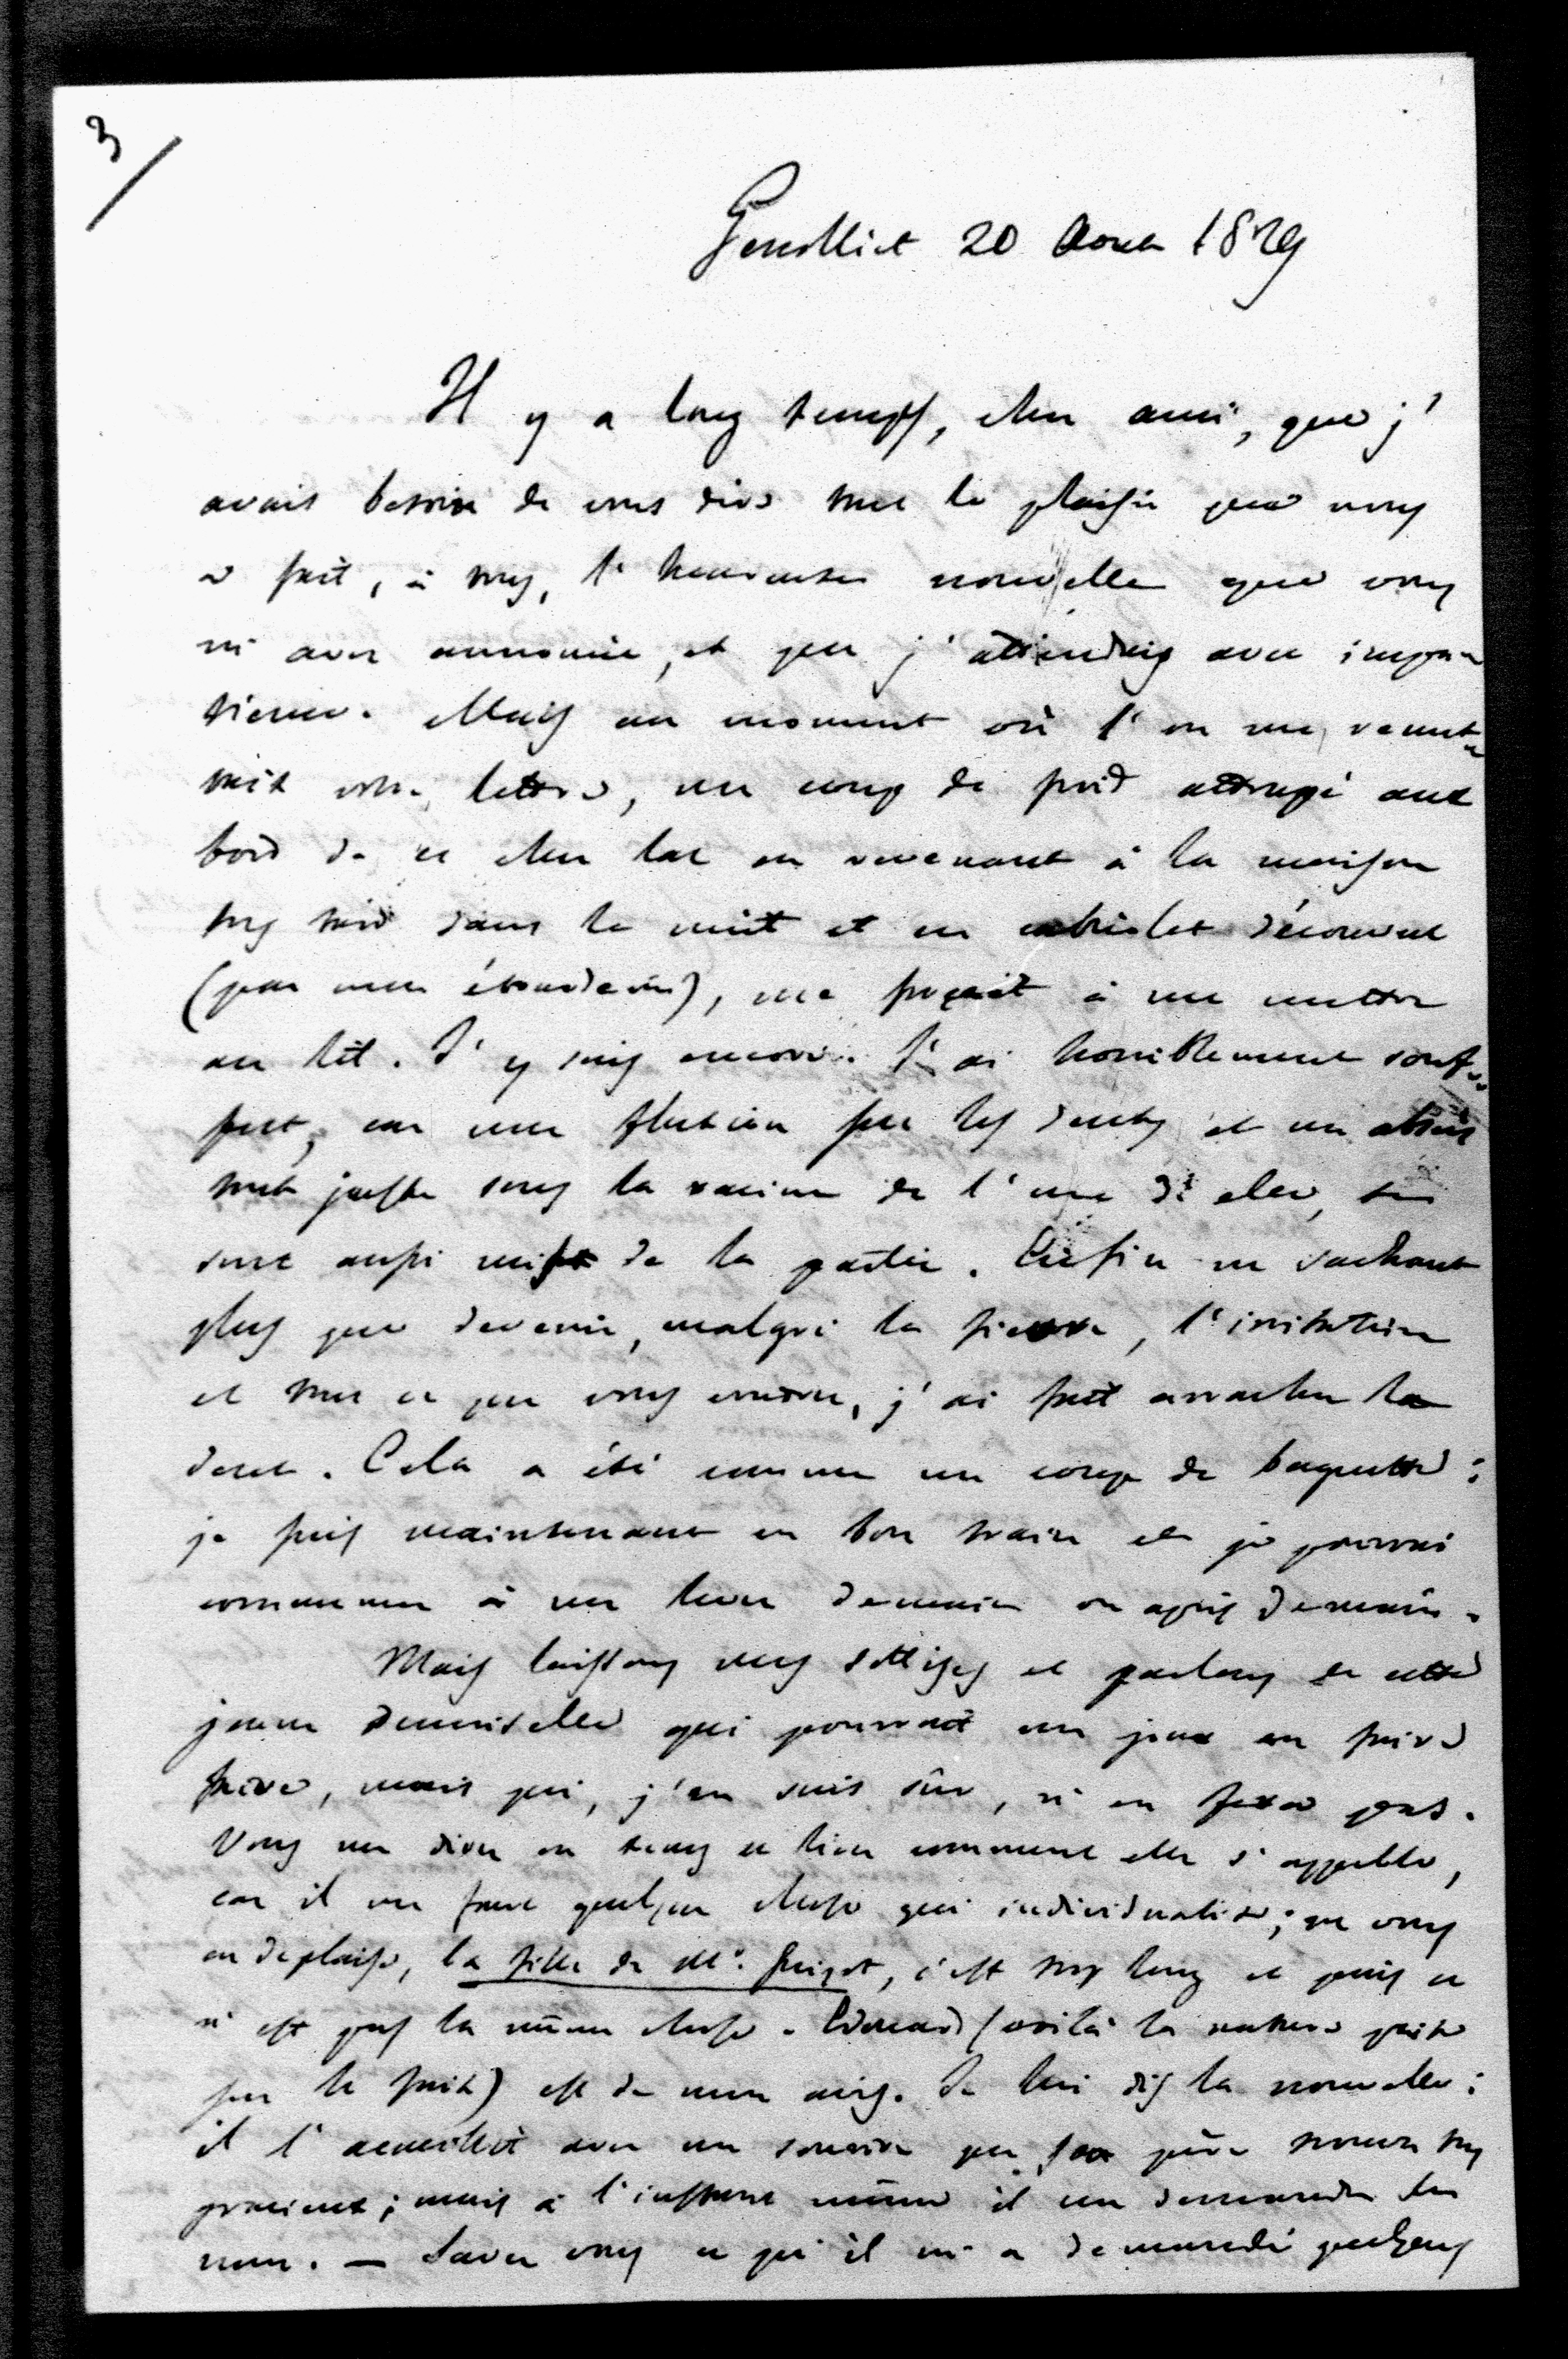 3
Genollier 20 Aout 1829
Il y a long temps, cher ami, que j'
avais besoin de vous dire tout le plaisir que nous
a fait, à tous, l'heureuse nouvelle que vous
m'avez annoncée, et que j'attendais avec impa
tience. Mais au moment où l'on me remet
tait votre lettre, un coup de froid attrapé aux
bord de ce cher lac en revenant à la maison
trop tard dans la nuit et en cabriolet découvert
(par mon étourderie), me forçait à me mettre
au lit. J'y suis encore. J'ai horriblement souf-
fert, car une fluxion sur les dents et un abcès
tout juste sous la racine de l'une d'elles, se
sont aussi mis de la partie. Enfin ne sachant
plus que devenir, malgré la fièvre, l'irritation
et tout ce que vous voudrez, j'ai fait arracher la
dent. Cela a été comme un coup de baguette :
je suis maintenant en bon train et je pourrai
commencer à me lever demain ou après demain.
Mais laissons mes sottises et parlons de cette
jeune demoiselle qui pourrait un jour en faire
faire, mais qui, j'en suis sûr, n'en fera pas.
Vous me direz en temps et lieu comment elle s'appelle,
car il me faut quelque chose qui individualise ; ne vous
en deplaise, la fille de Mr. Guizot, c'est trop long et puis ce
n'est pas la même chose. Edouard (voilà la nature prise
sur le fait) est de mon avis. Je lui dis la nouvelle :
il l'accueillit avec un sourire que son père trouva très
gracieux ; mais à l'instant même il me demanda son
nom. — Savez vous ce qu'il m'a demandé quelques